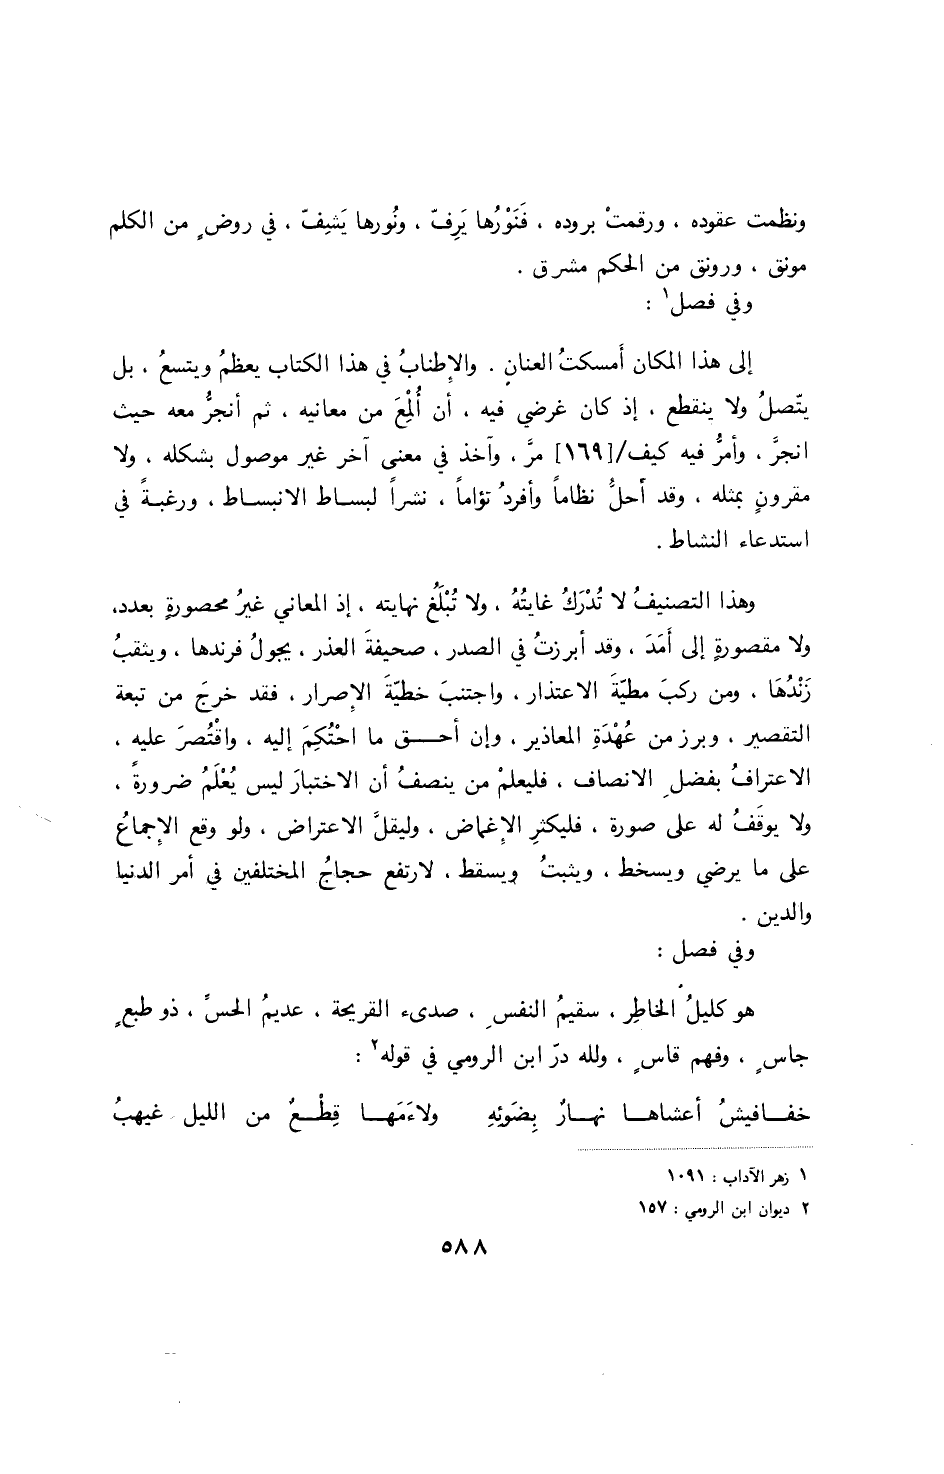 ونظمت عقوده ، ورقمتْ بروده ، فَنَوْرُها يَرِفّ ، ونُورها يَشِفّ ، في روضٍ من الكلم
مونق ، ورونق من الحكم مشرق .
وفي فصل١ :
إلى هذا المكان أمسكتُ العنانِ . والإطنابُ في هذا الكتاب يعظمُ ويتسعُ ، بل
يتّصلُ ولا ينقطع ، إذ كان غرضي فيه ، أن أُلْمِعَ من معانيه ، ثم أنجرُّ معه حيث
انجرَّ ، وأمرُّ فيه كيف/[١٦٩] مرَّ ، وآخذ في معنى آخر غير موصول بشكله ، ولا
مقرونٍ بمثله ، وقد أحلُّ نظاماً وأفردُ تؤاماً ، نشراً لبساط الانبساط ، ورغبةً في
استدعاء النشاط .
وهذا التصنيفُ لا تُدْرَكُ غايتُهُ ، ولا تُبْلَغُ نهايته ، إذ المعاني غيرُ محصورةٍ بعدد،
ولا مقصورةٍ إلى أَمَدَ ، وقد أبرزتُ في الصدر ، صحيفةَ العذر ، يجولُ فرندها ، ويثقبُ
زَنْدُهَا ، ومن ركبَ مطيّةَ الاعتذار ، واجتنبَ خطيّةَ الإصرار ، فقد خرجَ من تبعة
التقصير ، وبرز من عُهْدَةِ المعاذير ، وإن أحق ما احْتُكِمَ إليه ، واقْتُصرَ عليه ،
الاعترافُ بفضلِ الانصاف ، فليعلمْ من ينصفُ أن الاختبارَ ليس يُعْلَمُ ضرورةً ،
ولا يوقَفُ له على صورة ، فليكثرِ الإغماض ، وليقلَّ الاعتراض ، ولو وقع الإجماعُ
على ما يرضي ويسخط ، ويثبتُ ويسقط ، لارتفع حجاجُ المختلفين في أمر الدنيا
والدين .
وفي فصل :
هو كليلُ الخاطِر ، سقيمُ النفسِ ، صدىء القريحة ، عديمُ الحسَّ ، ذو طبعٍ
جاسٍ ، وفهم قاسٍ ، ولله درّ ابن الرومي في قوله٢ :
خفافيشُ أعشاها نهارٌ بِضَوئِهِ ولاءَمَها قِطْعٌ من الليل غيهبُ
١ زهر الآداب : ١٠٩١
٢ ديوان ابن الرومي : ١٥٧
٥٨٨